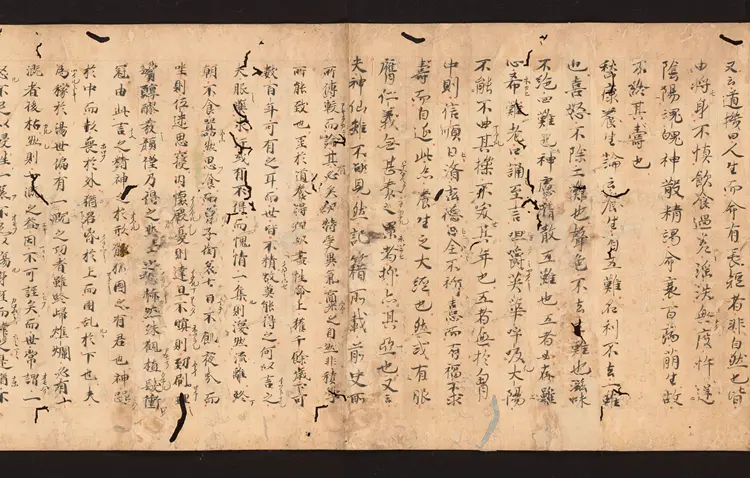 又云道機曰人生而命有長短者非自然也皆
由將身不慎飲食過差淫泆無度忤逆
陰陽魂魄神散精竭命衰百病萌生故
不終其壽也
嵆康養生論云養生有五難名利不去一難
也喜怒不除二難也聲色不去三難也滋味
不絶四難也神慮精散五難也五者必存雖
心希難老口誦至言咀嚼英華呼吸大陽
不能不曲其操不夭其年也五者無於胷
中則信順日濟玄德日全不祈喜而有福不求
壽而自延此亦養生之大經也然或有服
膺仁義無甚泰之累者抑亦其亞也又云
夫神仙雖不目見然記籍所載前史所
所傳較而論其必矣似特受異氣稟之自然非積
所能致也至於道養得理以盡性命上獲千餘歲下可
數百年可有之耳而世皆不精故莫能得之何以言之
夫服藥求汗或有不獲而愧情一集則渙然流離終
朝不食囂然思食而曾子銜哀七日不飢夜分而
坐則低迷思寢內懷殷憂則達旦不瞑
醇醴發顔僅乃得之壯士之怒赫然殊觀植髮衝
冠由此言之精神之於形骸猶國之有君也神躁
於中而形喪於外猶君昏於上而國亂於下也夫
為稼於湯世偏有一溉之功者雖終歸燋爛必有一
溉者後枯然則一溉之益固不可誣矣而世常謂一